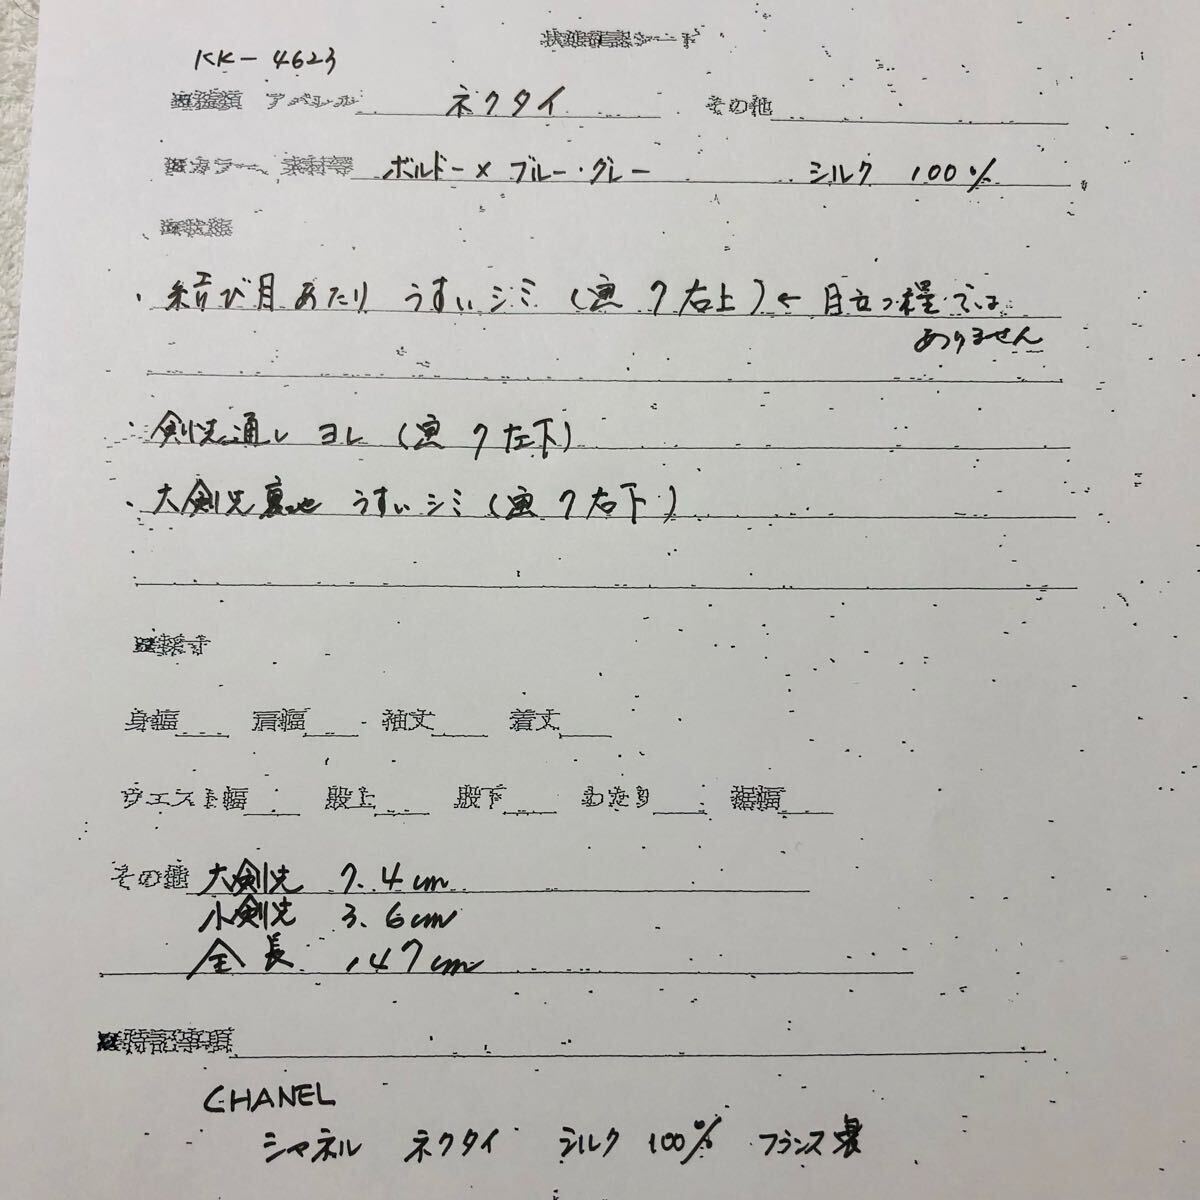 状態確認シート
KK-4623
種類 アパレル ネクタイ その他
カラー、素材等 ボルドー×ブルー・グレー シルク 100%
状態
・結び目あたり うすいシミ (画 7 右上) ← 目立つ程では
ありません
・剣先通し ヨレ (画 7 左下)
・大剣先裏地 うすいシミ (画 7 右下)
採寸
身幅 肩幅 袖丈 着丈
ウエスト幅 股上 股下 わたり 裾幅
その他 大剣先 7.4cm
小剣先 3.6cm
全長 147cm
特記事項
CHANEL
シャネル ネクタイ シルク 100% フランス製